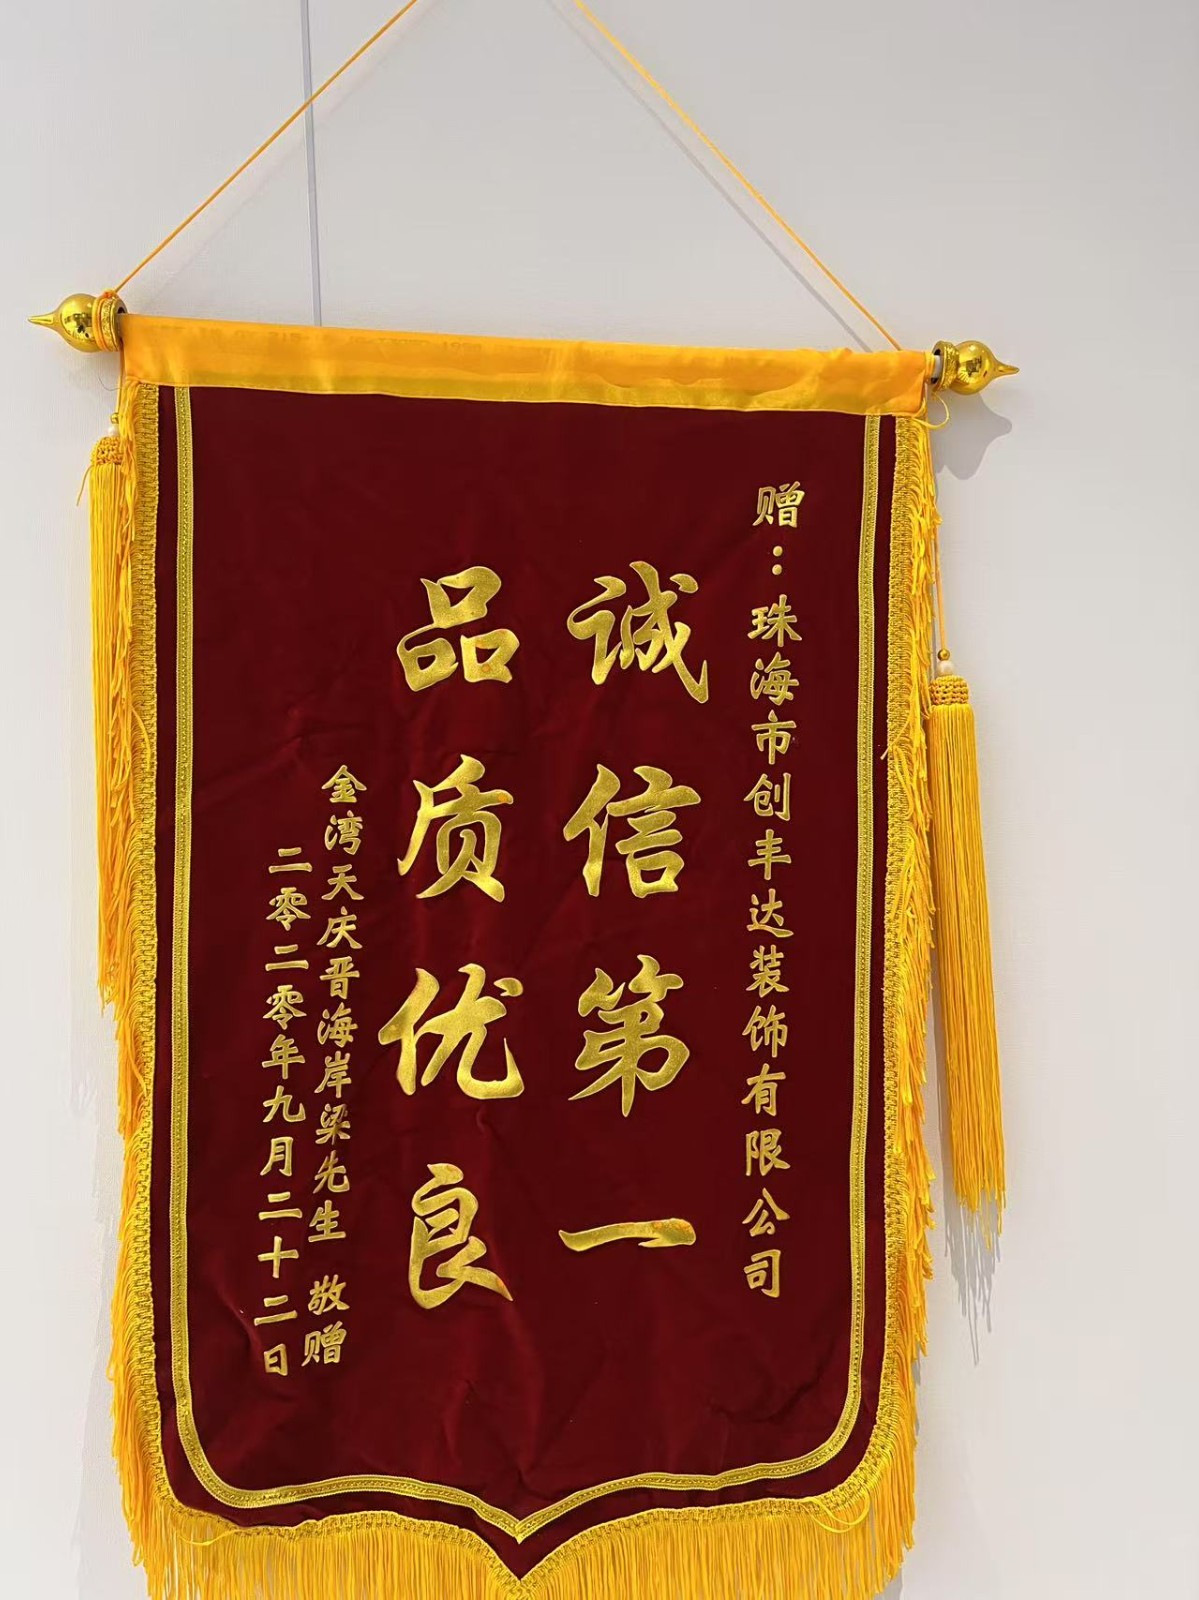 赠：珠海市创丰达装饰有限公司
诚信第一
品质优良
金湾天庆晋海岸梁先生 敬赠
二零二零年九月二十二日